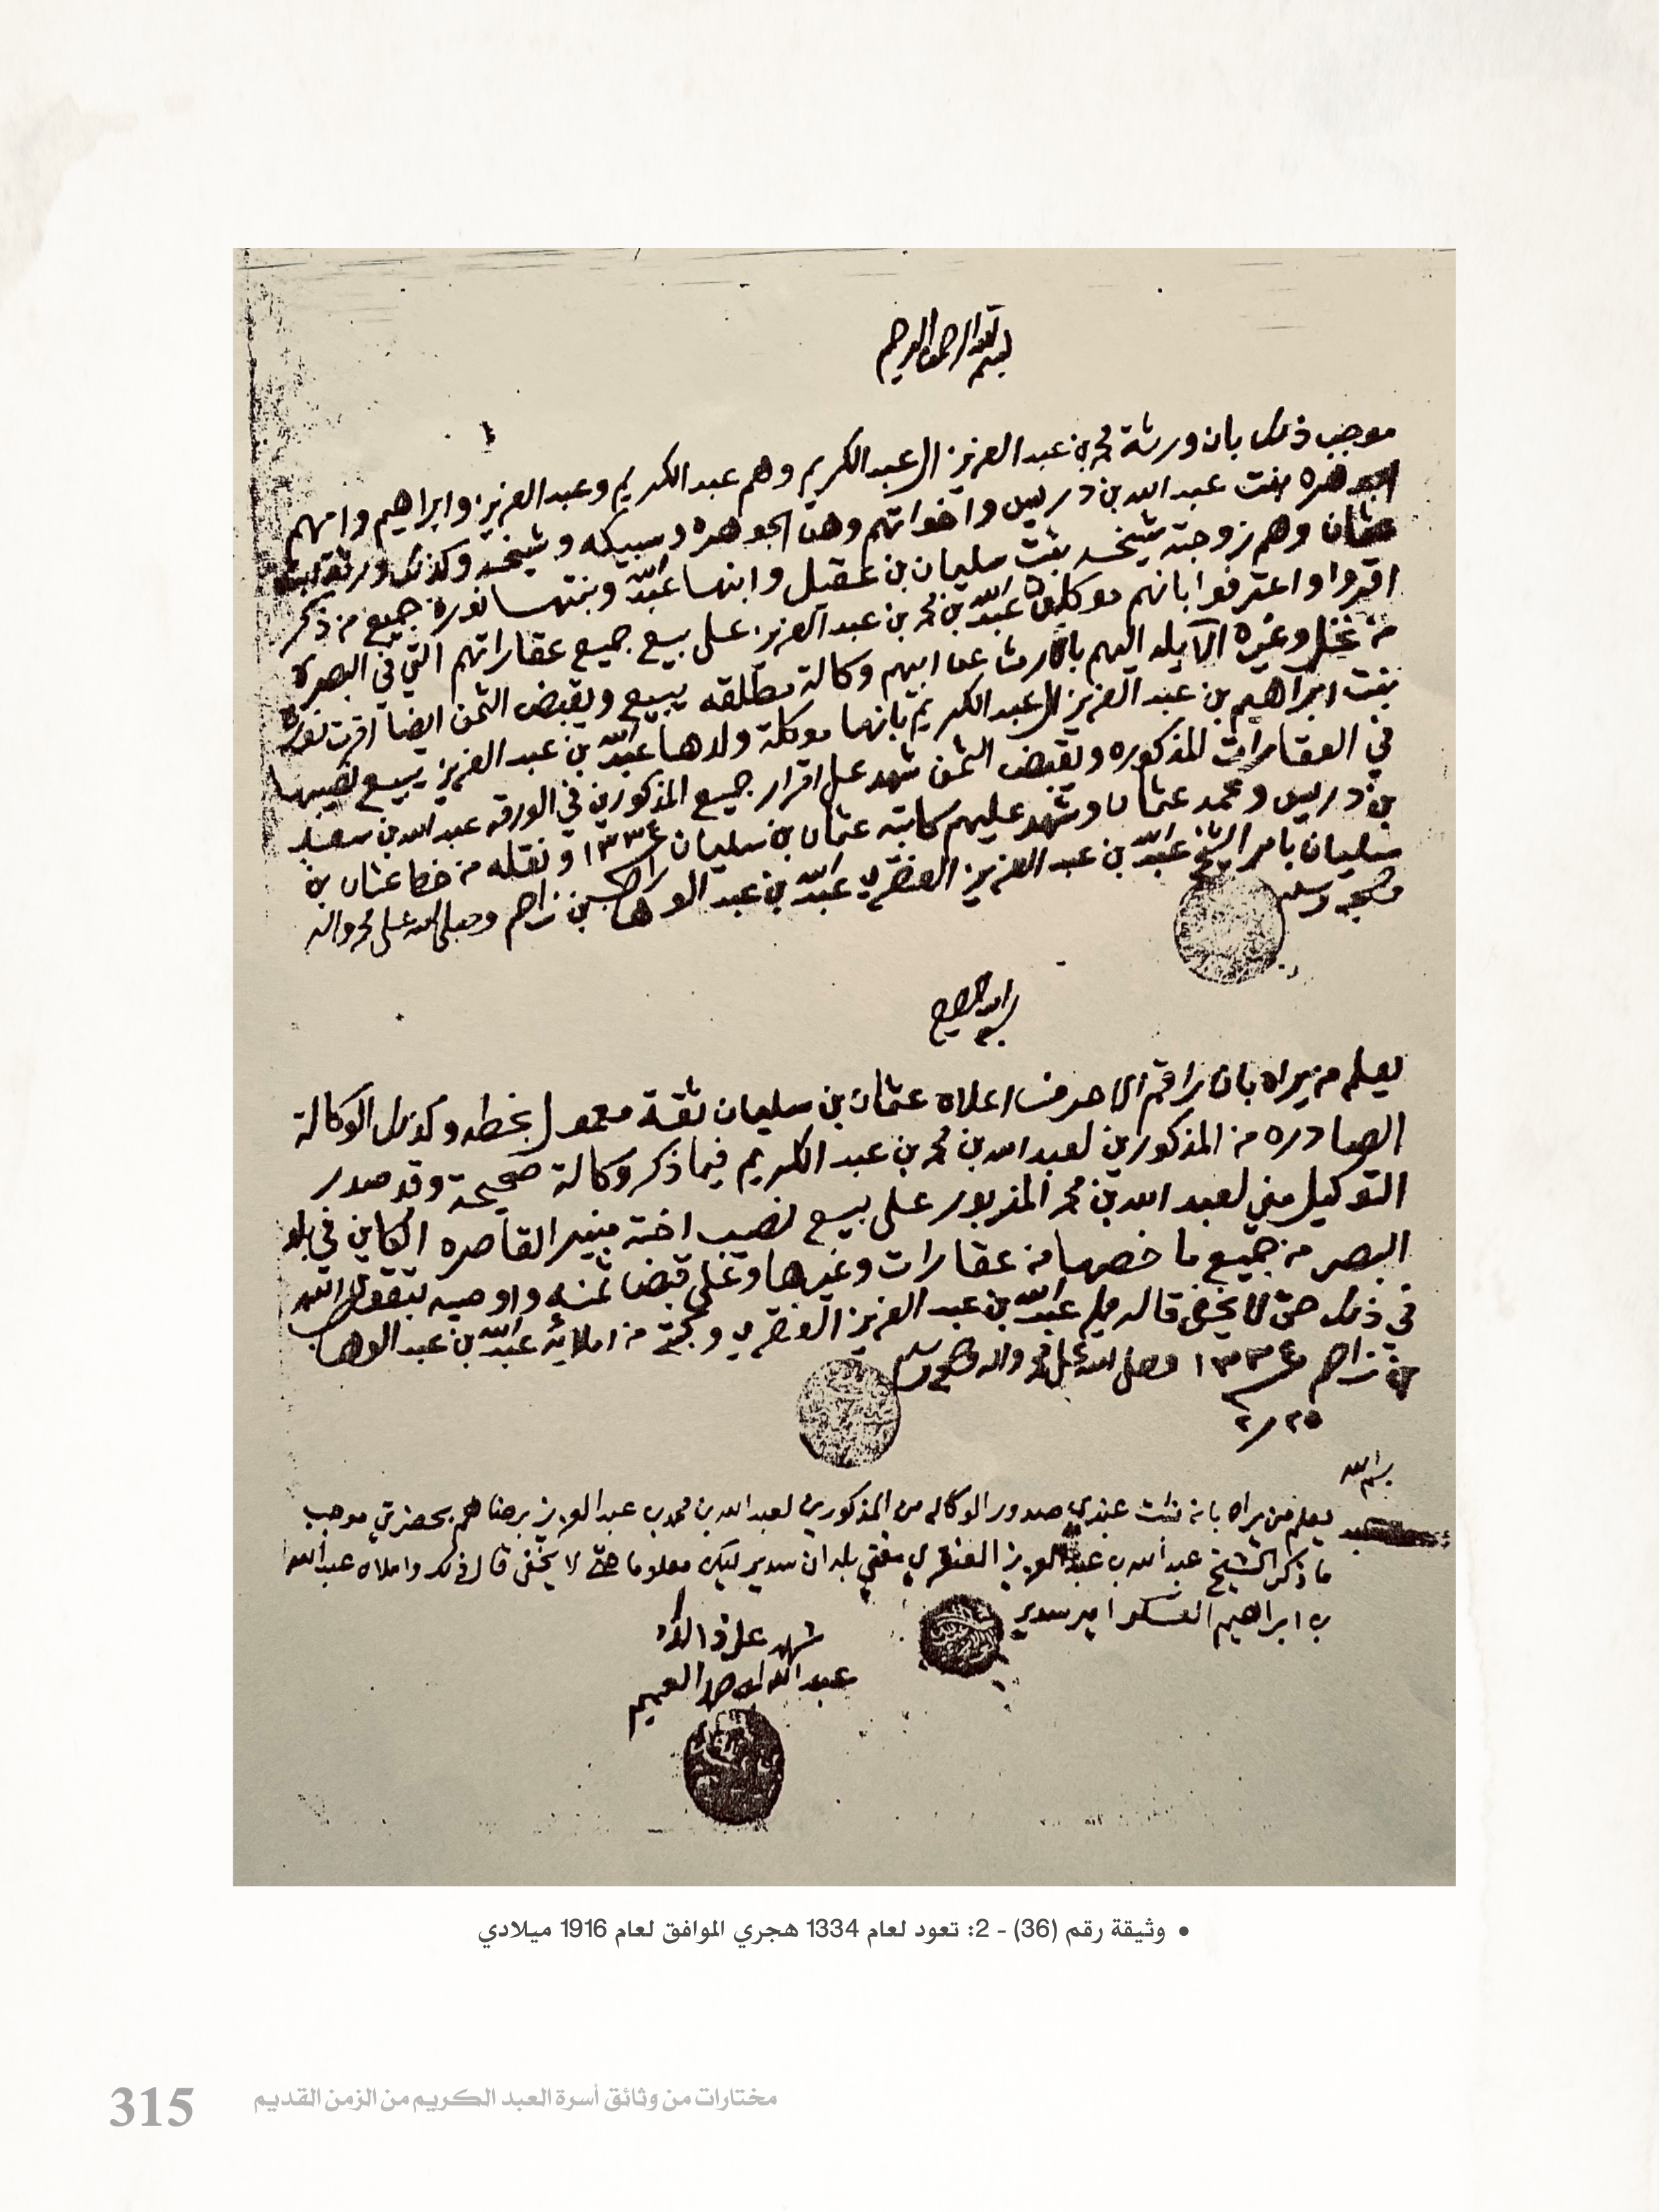 بسم الله الرحمن الرحيم
موجب ذلك بان ورثة محمد بن عبد العزيز العبد الكريم وهم عبد الكريم وعبد العزيز وابراهيم وامهم
الجوهره بنت عبد الله بن دريس واخواتهم وهن الجوهره وسبيكه وشيخه وكذلك ورثة
عثمان وهم زوجته شيخه بنت سليمان بن عقيل وابنها عبد الله وبنتها نوره جميع من ذكر
اقروا واعترفوا بانهم موكلين عبد الله بن محمد بن عبد العزيز على بيع جميع عقاراتهم التي في البصرة
من نخل وغيره الآيله اليهم بالارث من ابيهم وكالة مطلقه يبيع ويقبض الثمن ايضا اقرت نوره
بنت ابراهيم بن عبد العزيز العبد الكريم بانها موكلة ولدها عبد الله بن عبد العزيز يبيع نصيبها
في العقارات المذكوره ويقبض الثمن شهد على اقرار جميع المذكورين في الورقه عبد الله بن سعد
بن دريس ومحمد عثمان وشهد عليهم كاتبه عثمان بن سليمان ١٣٣٤ ونقله من خط عثمان بن
سليمان بامر الشيخ عبد الله بن عبد العزيز العنقري عبد الله بن عبد الوهاب بن زاحم وصلى الله على محمد واله
وصحبه وسلم
بسم الله الرحمن الرحيم
يعلم من يراه بان راقم الاحرف اعلاه عثمان بن سليمان ثقة معمول بخطه وكذلك الوكالة
الصادره من المذكورين لعبد الله بن محمد بن عبد الكريم فيما ذكر وكالة صحيحة وقد صدر
التوكيل مني لعبد الله بن محمد المزبور على بيع نصيب اخته منيره القاصره الكاين في بلد
البصره من جميع ما خصها من عقارات وغيرها وعلى قبض ثمنه واوصيه بتقوى الله
في ذلك حتى لا يخفى قاله ممليه عبد الله بن عبد العزيز العنقري وكتبه من املائه عبد الله بن عبد الوهاب
بن زاحم ١٣٣٤ وصلى الله على محمد واله وصحبه وسلم
٢٥ ر ٢
بسم الله
يعلم من يراه بانه ثبت عندي صدور الوكاله من المذكورين لعبد الله بن محمد بن عبد العزيز برضاهم بحضرتي موجب
ما ذكر الشيخ عبد الله بن عبد العزيز العنقري مفتي بلدان سدير ليكن معلوما حتى لا يخفى قال ذلك واملاه عبد الله
بن ابراهيم العسكر امير سدير
شهد على ذلك
عبد الله
• وثيقة رقم (36) - 2: تعود لعام 1334 هجري الموافق لعام 1916 ميلادي
315 مختارات من وثائق أسرة العبد الكريم من الزمن القديم